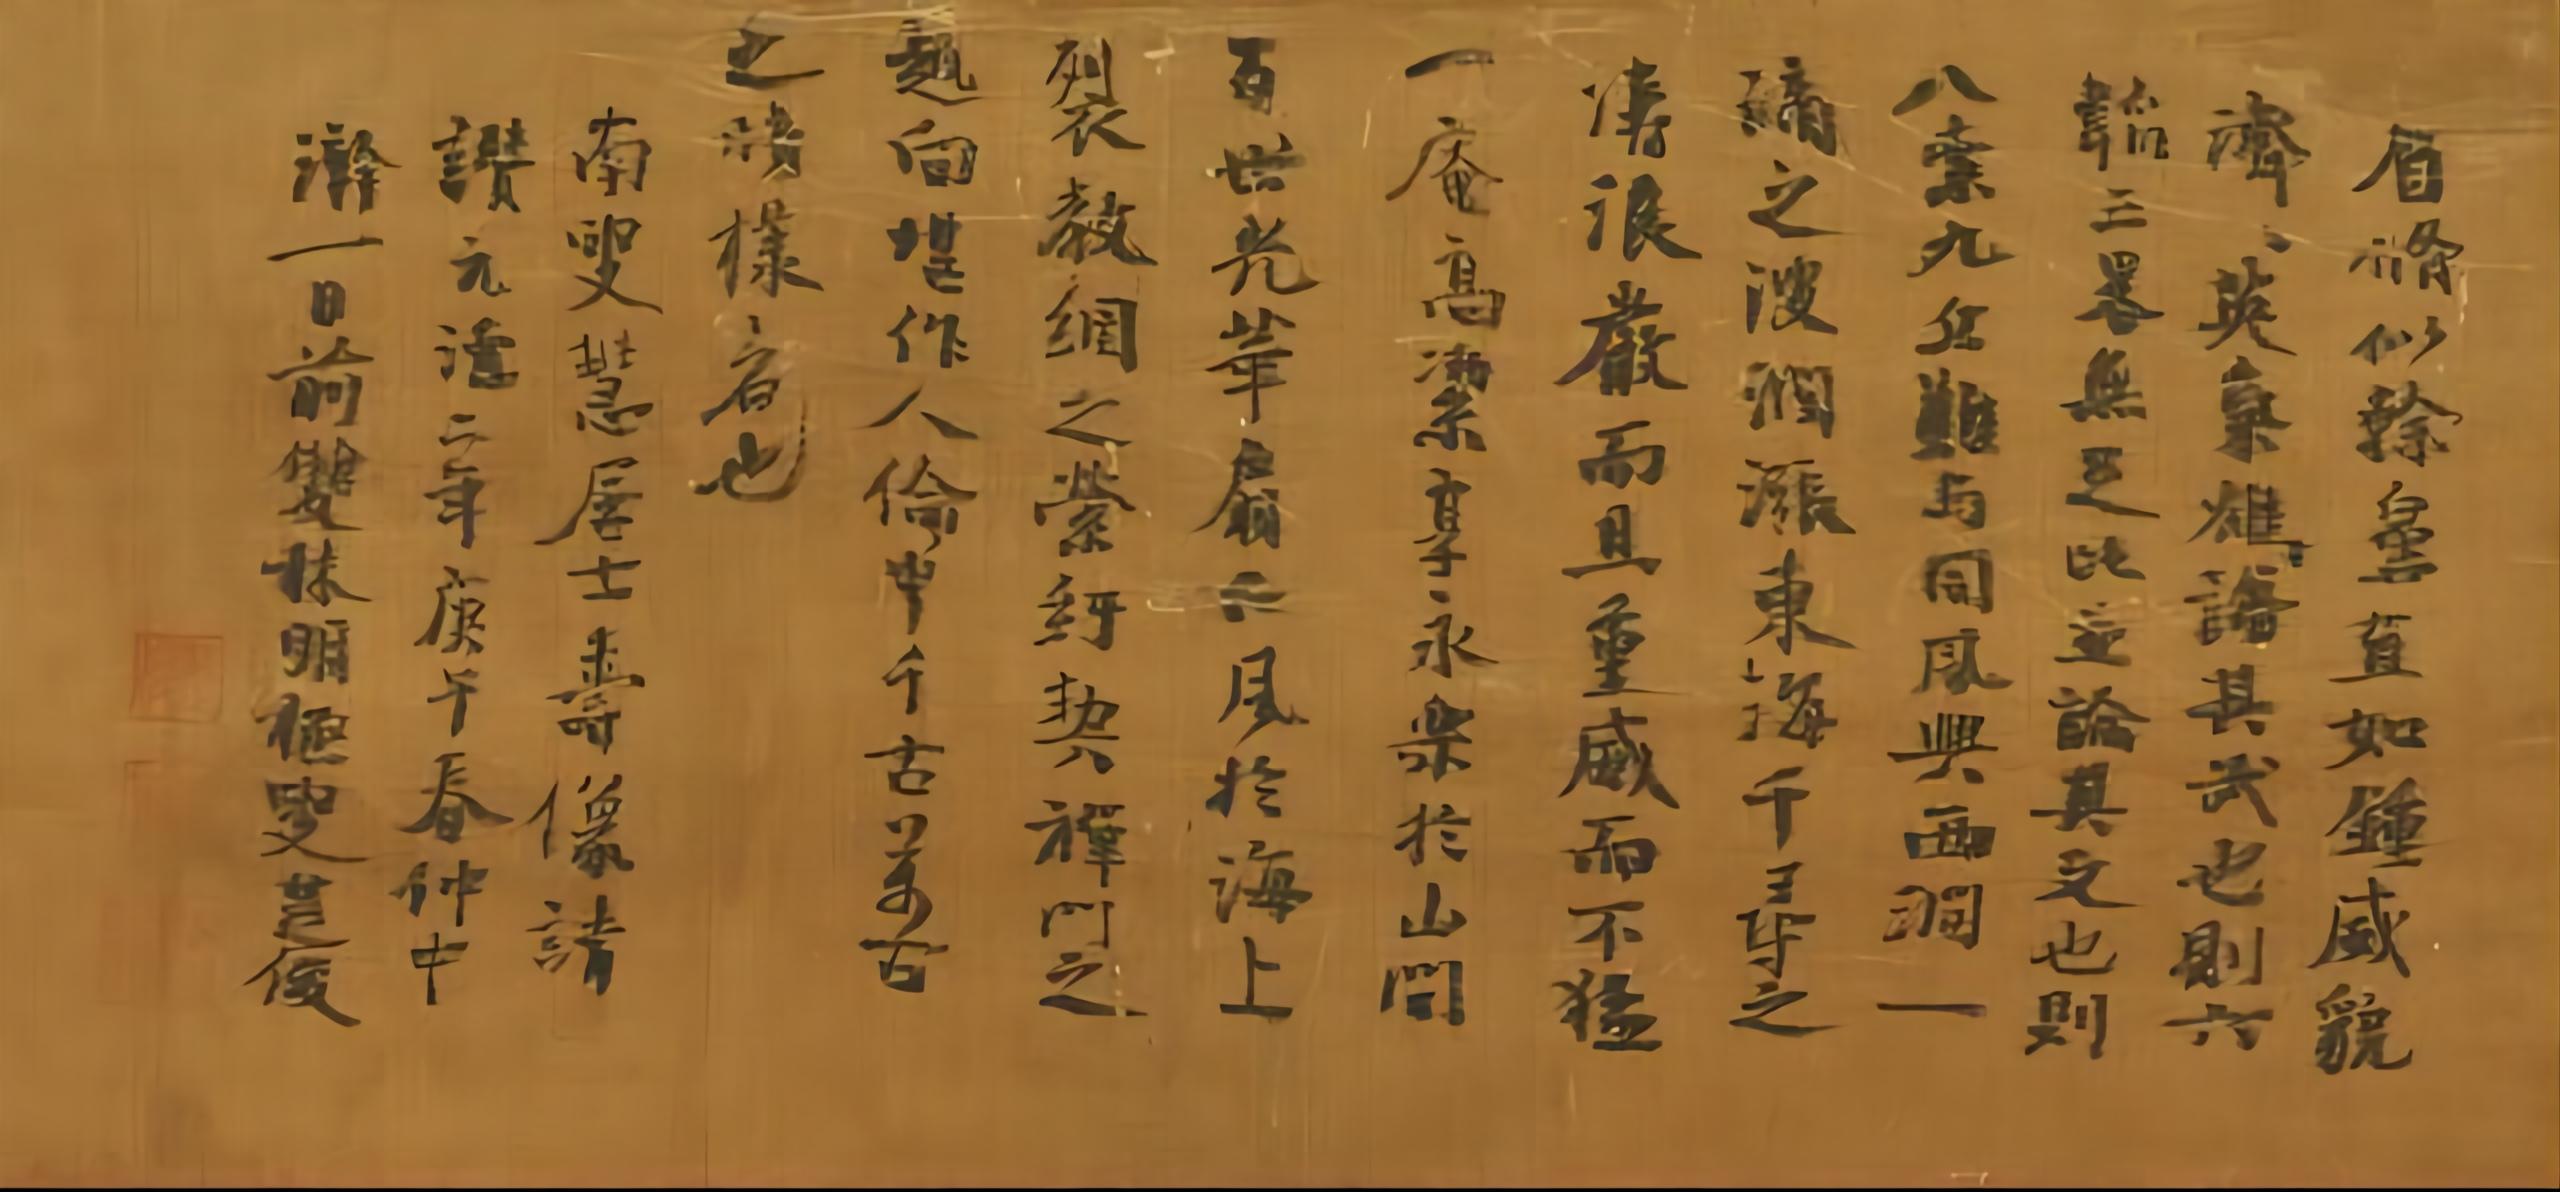 眉脩似直如鍾威貌
濟〻英雄論其武也則六
韜三畧無足比並論其文也則
八索九丘難與同風興西澗一
滴之波瀾漲東海千尋之
濤浪嚴而且重威而不猛
一庵高潔享永樂於山間
百世光華扇仁風於海上
裂教網之縈紆契禪門之
向堪作人倫中千古萬古
之榜樣者也
南叟慧居士壽像請
讚元德二年庚午春仲中
澣一日前雙林明極叟楚俊